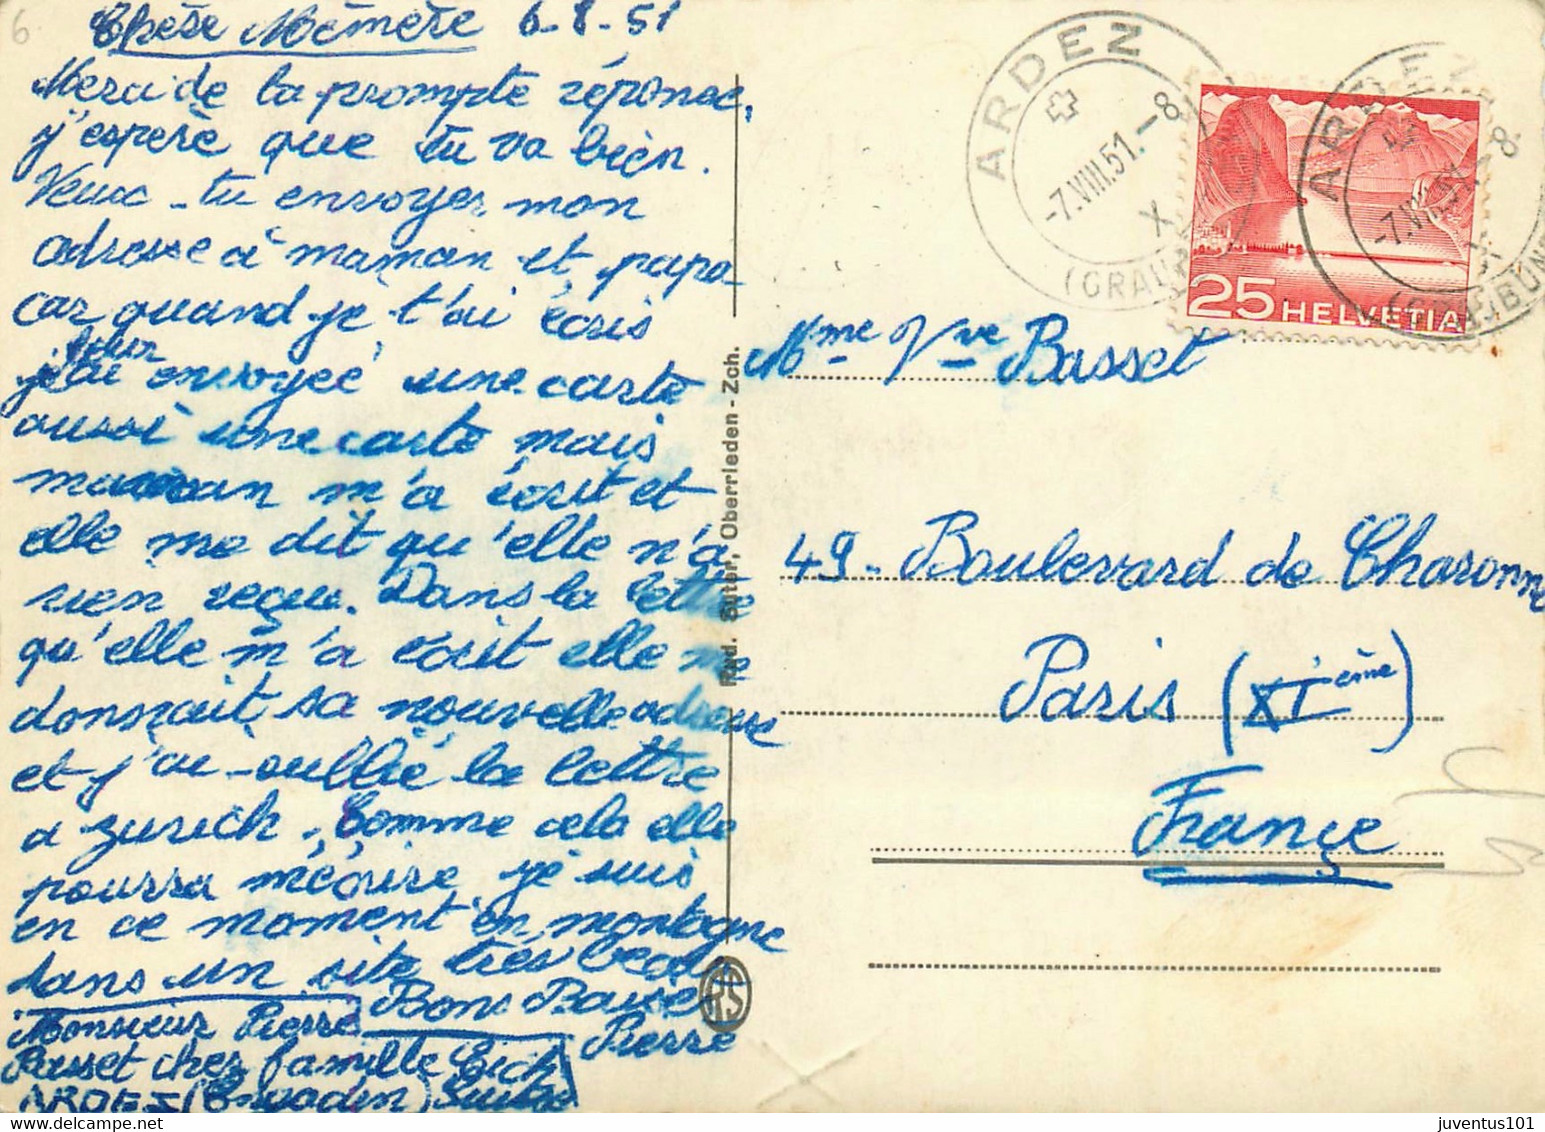 6
Chère Mémère 6-8-51
Merci de la prompte réponse,
j'espère que tu va bien.
Veux-tu envoyer mon
adresse à maman et papa
car quand je t'ai écris
j'ai leur envoyée une carte
aussi une carte mais
maman m'a écrit et
elle me dit qu'elle n'a
rien reçue. Dans la lettre
qu'elle m'a écrit elle me
donnait sa nouvelle adresse
et j'ai oublié la lettre
a zurich. Comme cela elle
pourra m'écrire je suis
en ce moment en montagne
dans un site très beau
Bons Baiser
Pierre
Monsieur Pierre
Basset chez famille Eich
ARDEZ (Engadin) Suisse
Rud. Suter, Oberrieden - Zch.
RS
ARDEZ
-7.VIII.51.-8
X
(GRAUB
ARDEZ
-7.VIII.51-8
X
BÜN
25 HELVETIA
Mme Vve Basset
49 - Boulevard de Charonne
Paris (XIième)
France
juventus101